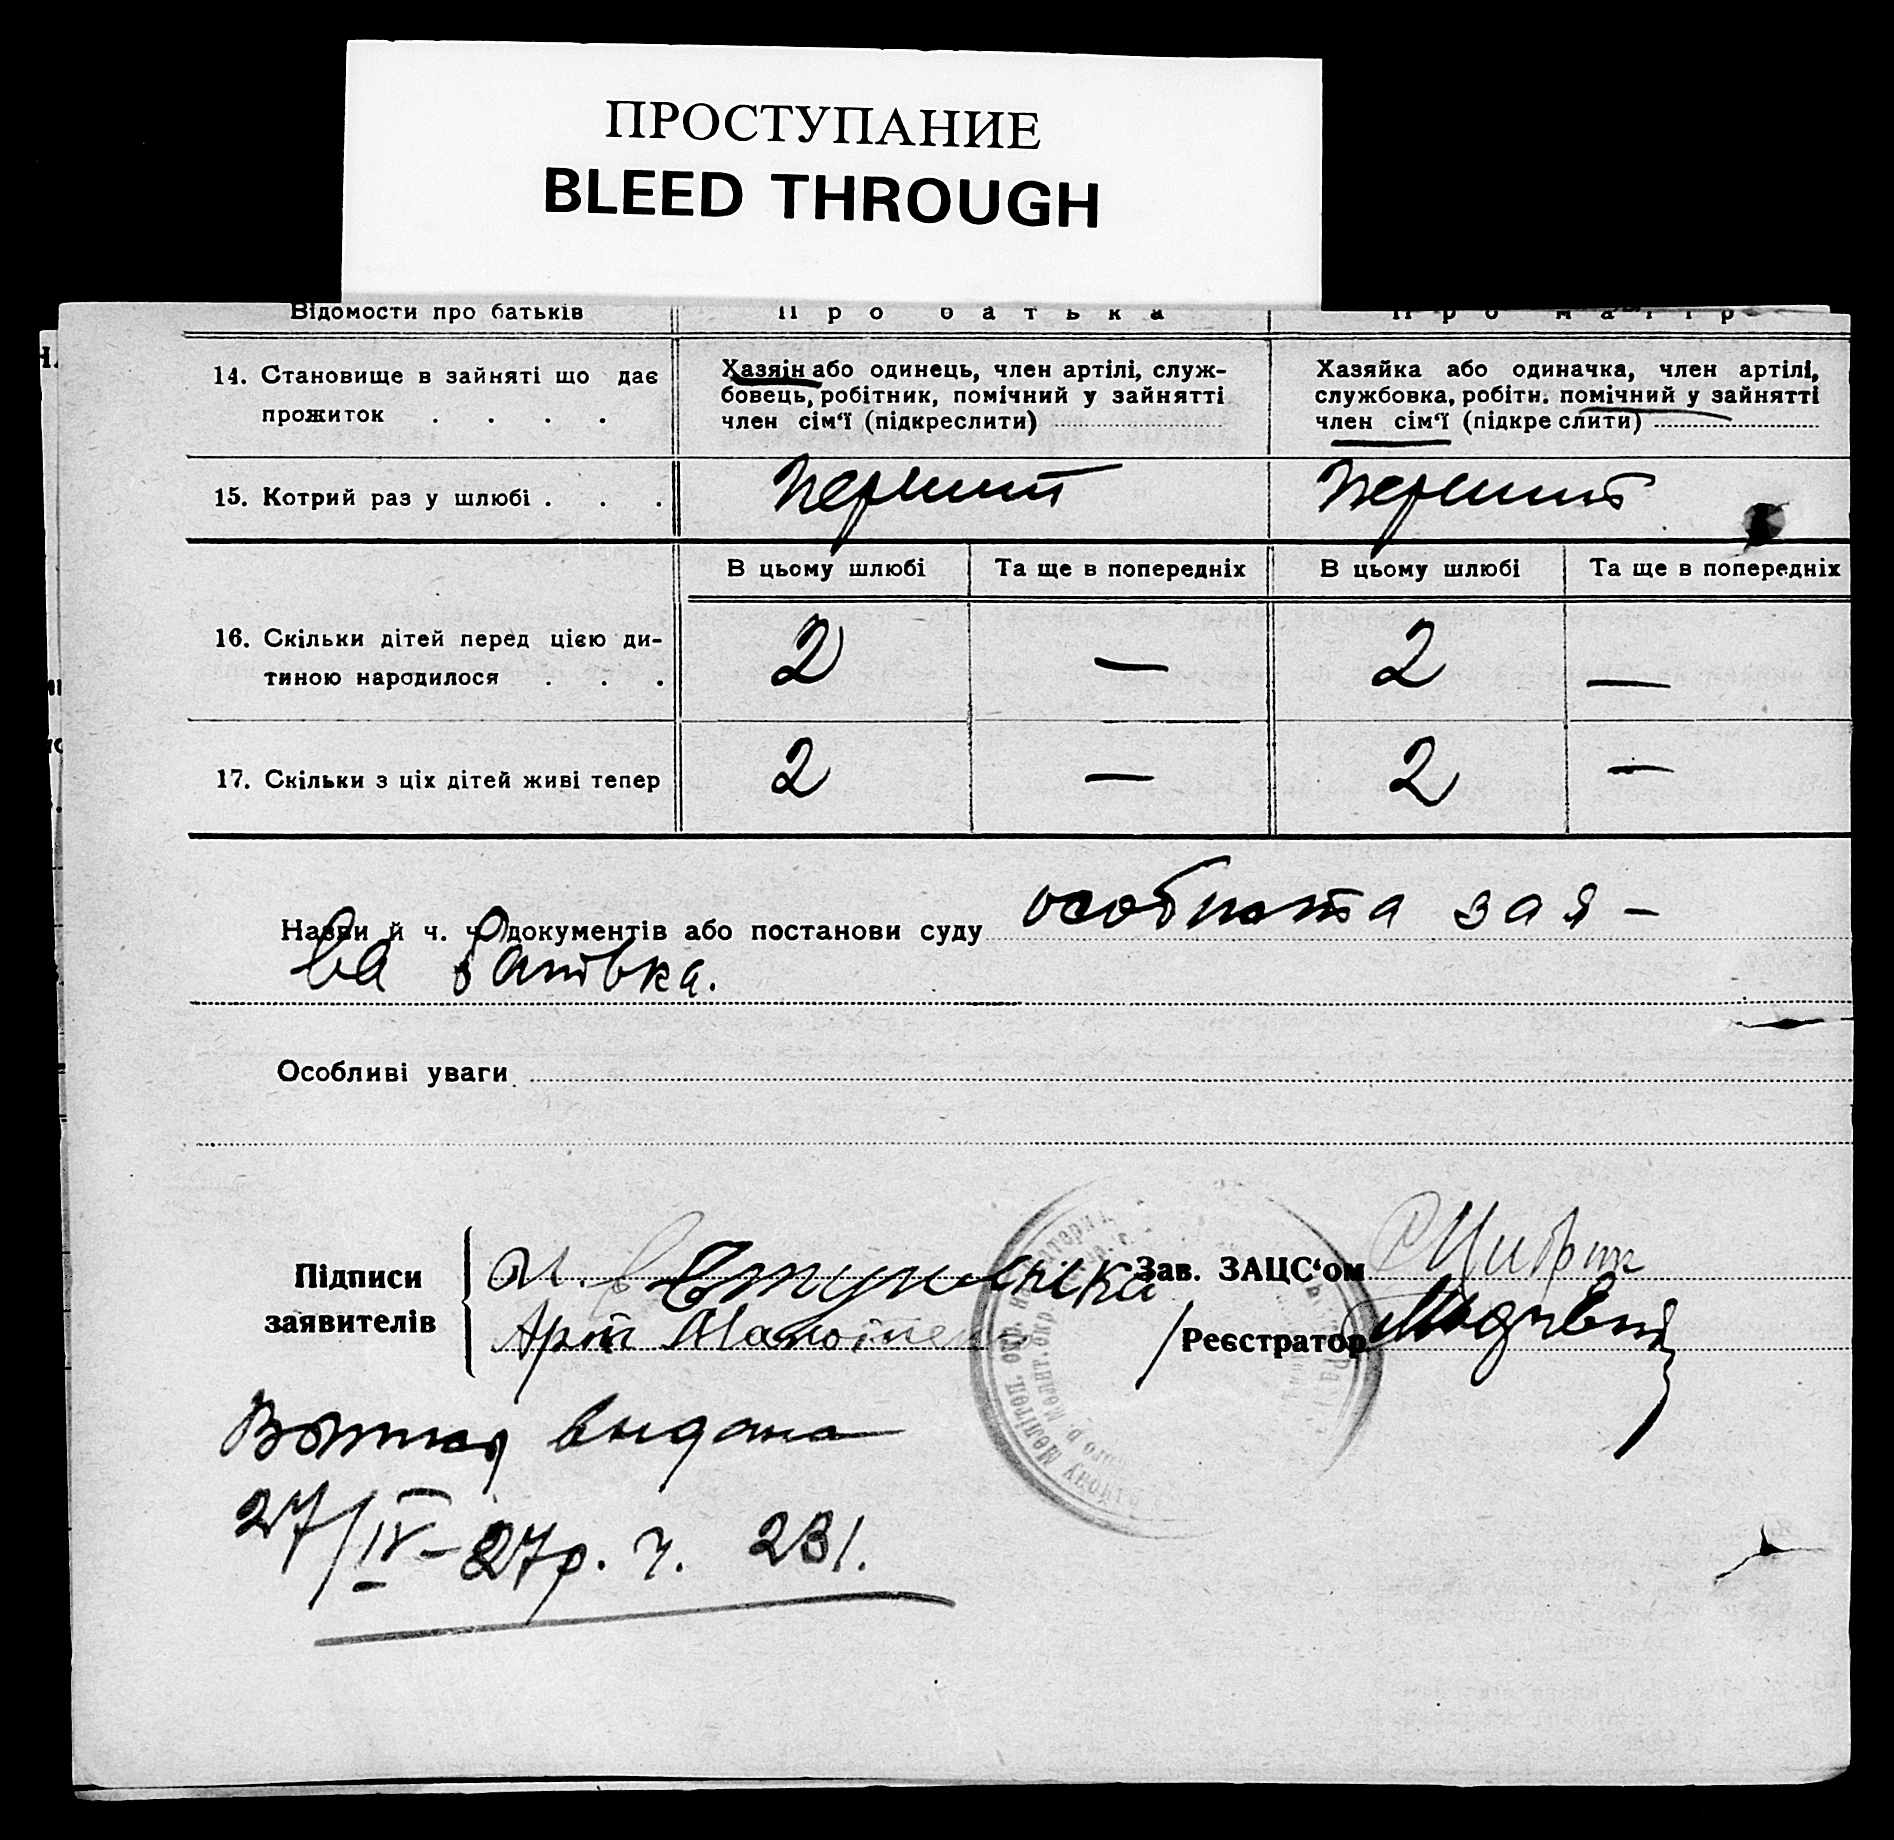 ПРОСТУПАНИЕ
BLEED THROUGH
Відомости про батьків
Про батька
Про матір
14. Становище в зайняті що дає
прожиток . . . .
Хазяін або одинець, член артілі, служ-
бовець, робітник, помічний у зайнятті
член сім‘ї (підкреслити)
Хазяйка або одиначка, член артілі,
службовка, робітн. помічний у зайнятті
член сім‘ї (підкреслити)
15. Котрий раз у шлюбі . . .
перший
перший
В цьому шлюбі
Та ще в попередніх
В цьому шлюбі
Та ще в попередніх
16. Скільки дітей перед цією ди-
тиною народилося . . .
2 — 2 —
17. Скільки з ціх дітей живі тепер
2 — 2 —
Назви й ч. ч. документів або постанови суду особиста зая-
ва батька.
Особливі уваги
Підписи
заявителів
Зав. ЗАЦС‘ом
Реєстратор
выдана
27/IV-27р. ч. 231.